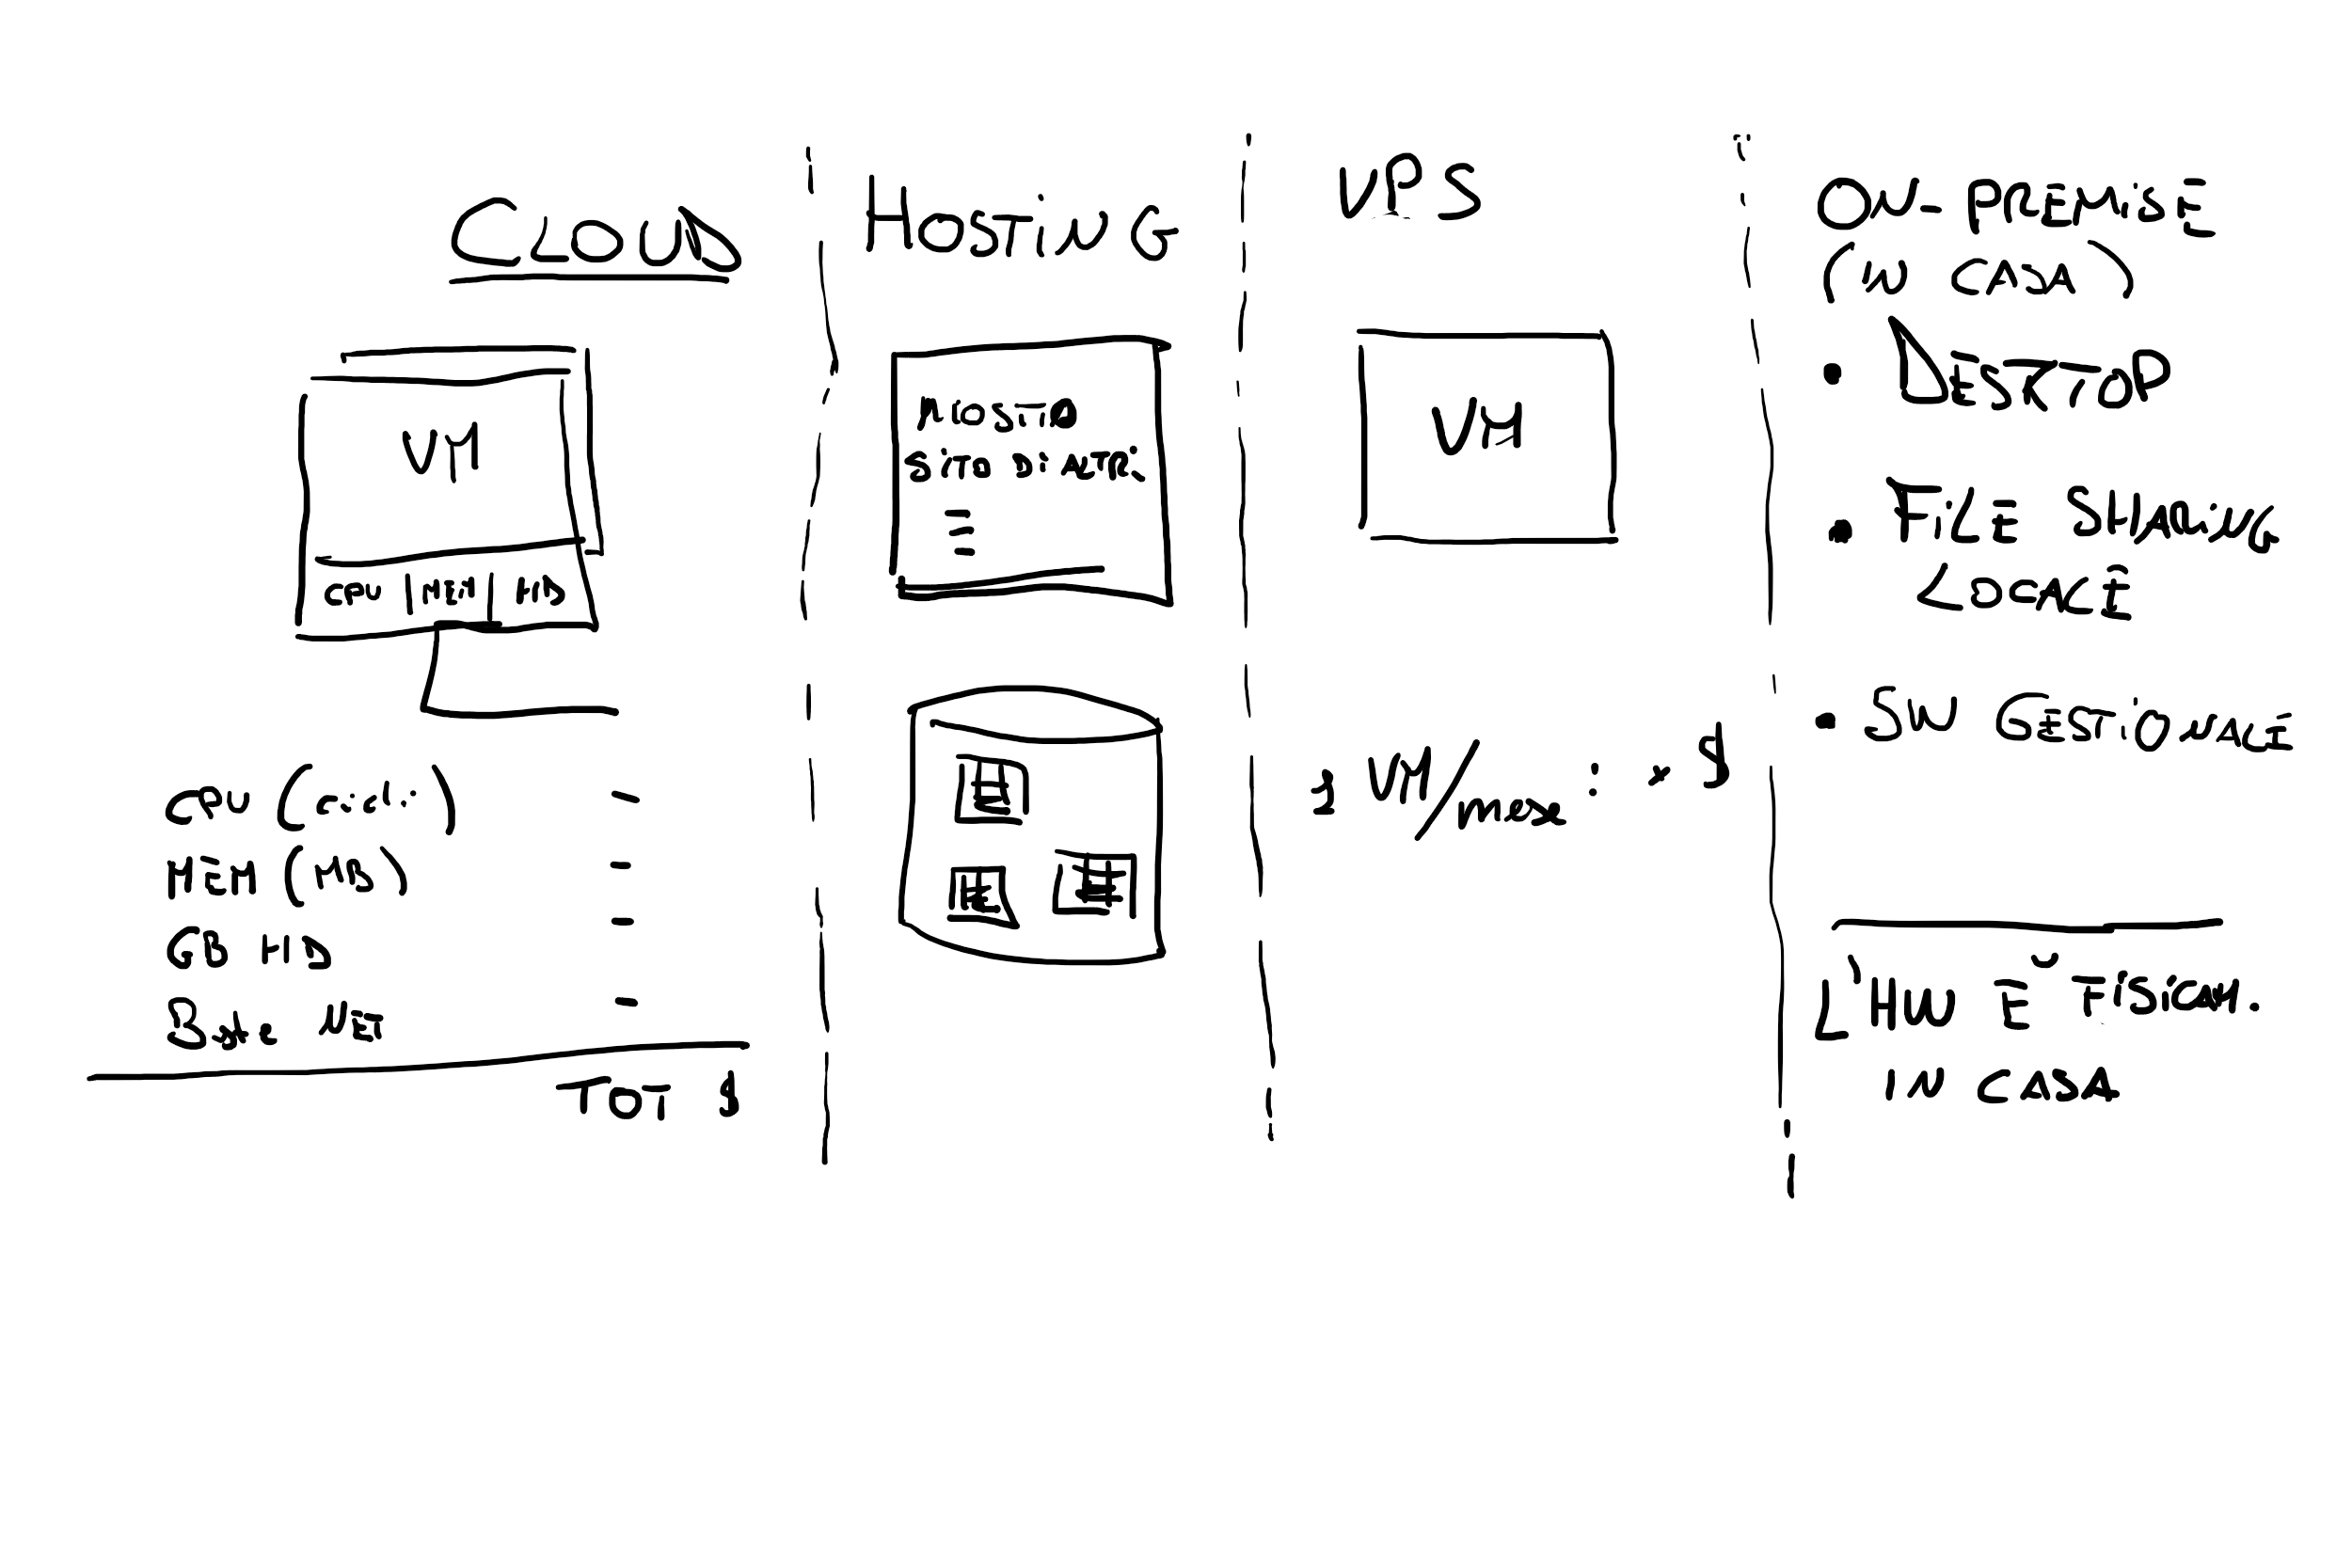 CLOUD
VM
CPU | MEM | HD
CPU (cicli) -
MEM (MB) -
GB HD -
Base Net -
TOT $
HOSTING
NOSTRO
SITO DI ATTR.
VPS
VM
1 VM/mese : x $
ON-PREMISE
(IN CASA)
• DESKTOP
• FILE SHARING
LOCALE
• SW GESTIONALE
L'HW È FISICAM.
IN CASA